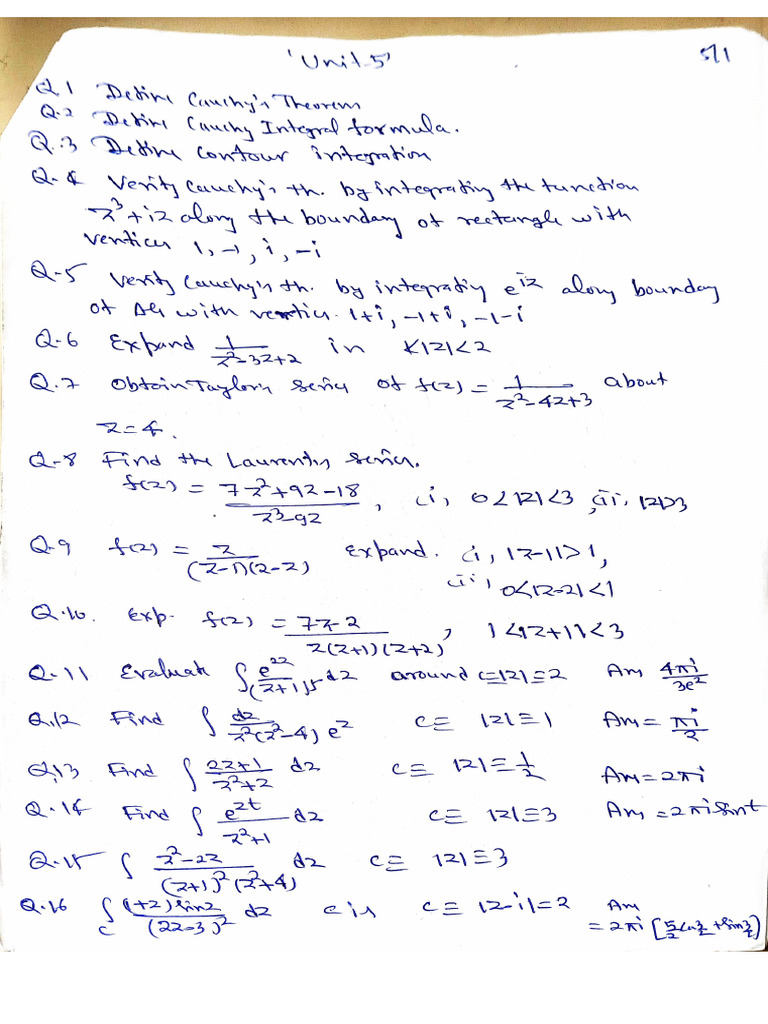 'Unit-5'
5/1
Q.1 Define Cauchy's Theorem
Q.2 Define Cauchy Integral formula.
Q.3 Define contour integration
Q.4 Verify Cauchy's th. by integrating the function
z³+iz along the boundary of rectangle with
vertices 1, -1, i, -i
Q-5 Verify Cauchy's th. by integrating e^{iz} along bounday
of Δle with vertices. 1+i, -1+i, -1-i
Q-6 Expand 1/(z²-3z+2) in 1<|z|<2
Q.7 Obtain Taylor's series of f(z) = 1/(z²-4z+3) about
z=4.
Q-8 Find the Laurent's series.
f(z) = (7z²+9z-18)/(z³-9z), (i, 0<|z|<3, (ii, |z|>3
Q.9 f(z) = z/((z-1)(2-z)) Expand. (i, |z-1|>1,
(ii, 0<|z-2|<1
Q.10. Exp. f(z) = (7z-2)/(z(z+1)(z+2)), 1<|z+1|<3
Q.11 Evaluate ∫ e^{2z}/(z+1)^5 dz around c≡|z|=2 Ans 4πi/3e²
Q.12 Find ∫ dz/(z²(z²-4)e^z) c≡ |z|=1 Ans = πi/2
Q.13 Find ∫ (2z+1)/(z²+z) dz c≡ |z|=1/2 Ans=2πi
Q.14 Find ∫ e^{zt}/(z²+1) dz c≡ |z|=3 Ans = 2πi sint
Q.15 ∫ (z²-2z)/((z+1)²(z²+4)) dz c≡ |z|=3
Q.16 ∫_C (1+z) sinz/(2z-3)² dz c is c≡ |z-i|=2 Ans
= 2πi [5/2 cos 3/2 + sin 3/2]